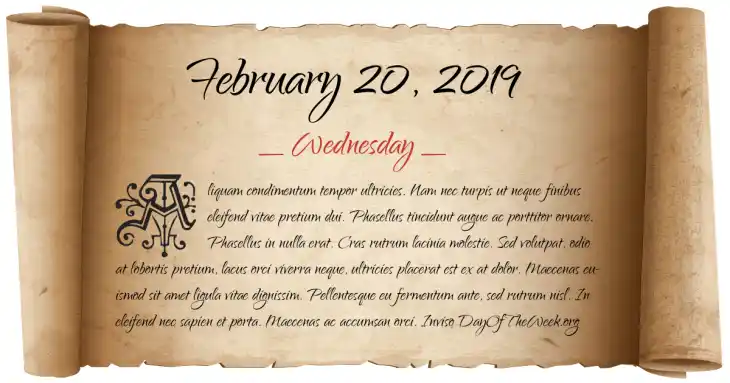 February 20, 2019
— Wednesday —
Aliquam condimentum tempor ultricies. Nam nec turpis ut neque finibus
eleifend vitae pretium dui. Phasellus tincidunt augue ac porttitor ornare.
Phasellus in nulla erat. Cras rutrum lacinia molestie. Sed volutpat, odio
at lobortis pretium, lacus orci viverra neque, ultricies placerat est ex at dolor. Maecenas eu-
ismod sit amet ligula vitae dignissim. Pellentesque eu fermentum ante, sed rutrum nisl. In
eleifend nec sapien et porta. Maecenas ac accumsan orci. Inviso DayOfTheWeek.org